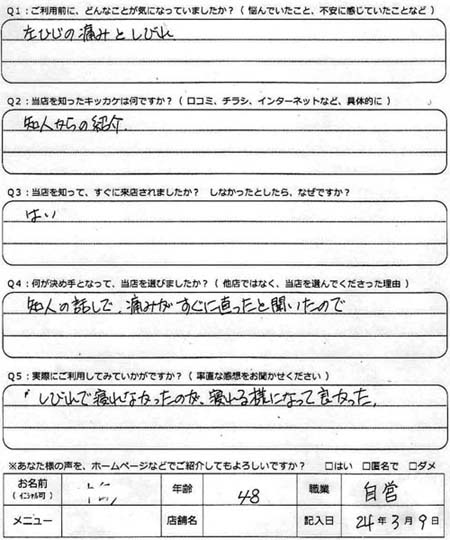 Q1：ご利用前に、どんなことが気になっていましたか？（ 悩んでいたこと、不安に感じていたことなど ）
左ひじの痛みとしびれ
Q2：当店を知ったキッカケは何ですか？（ 口コミ、チラシ、インターネットなど、具体的に ）
知人からの紹介.
Q3：当店を知って、すぐに来店されましたか？　しなかったとしたら、なぜですか？
はい
Q4：何が決め手となって、当店を選びましたか？（ 他店ではなく、当店を選んでくださった理由 ）
知人の話しで、痛みがすぐに直ったと聞いたので
Q5：実際にご利用してみていかがですか？（ 率直な感想をお聞かせください ）
しびれで寝れなかったのが、寝れる様になって良かった.
※あなた様の声を、ホームページなどでご紹介してもよろしいですか？　□はい　□匿名で　□ダメ
お名前 年齢 48 職業 自営
（イニシャル可）
メニュー 店舗名 記入日 24年3月9日